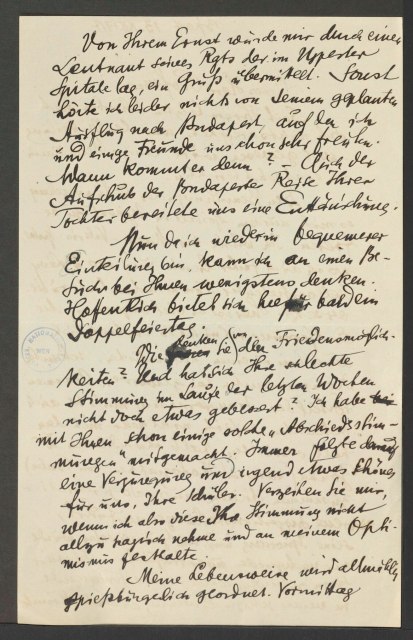 Von Ihrem Ernst wurde mir durch einen
Leutnant seines Rgts der im Ujpester
Spitale lag, ein Gruß übermittelt. Sonst
hörte ich leider nichts von seinem geplanten
Ausflug nach Budapest, auf den ich
und einige Freunde uns schon sehr freuten.
Wann kommt er denn? – Auch der
Aufschub der Budapester Reise Ihrer
Tochter bereitete uns eine Enttäuschung.
Nun da ich wieder in bequemerer
Einteilung bin, kann ich an einen Be-
such bei Ihnen wenigstens denken.
Hoffentlich bietet sich hiefür bald ein
Doppelfeiertag.
Wie denken Sie von den Friedensmöglich-
keiten? Und hat sich Ihre schlechte
Stimmung im Laufe der letzten Wochen
nicht doch etwas gebessert? Ich habe
mit Ihnen schon einige solche "Abschiedsstim-
mungen" mitgemacht. Immer folgte darauf
eine Verjüngung und irgend etwas Schönes
für uns, Ihre Schüler. Verzeihen Sie mir,
wenn ich also diese Stimmung nicht
allzu tragisch nehme und an meinem Opti-
mismus festhalte.
Meine Lebensweise wird allmählig
spießbürgerlich geordnet. Vormittag
NATIONALB
WIEN